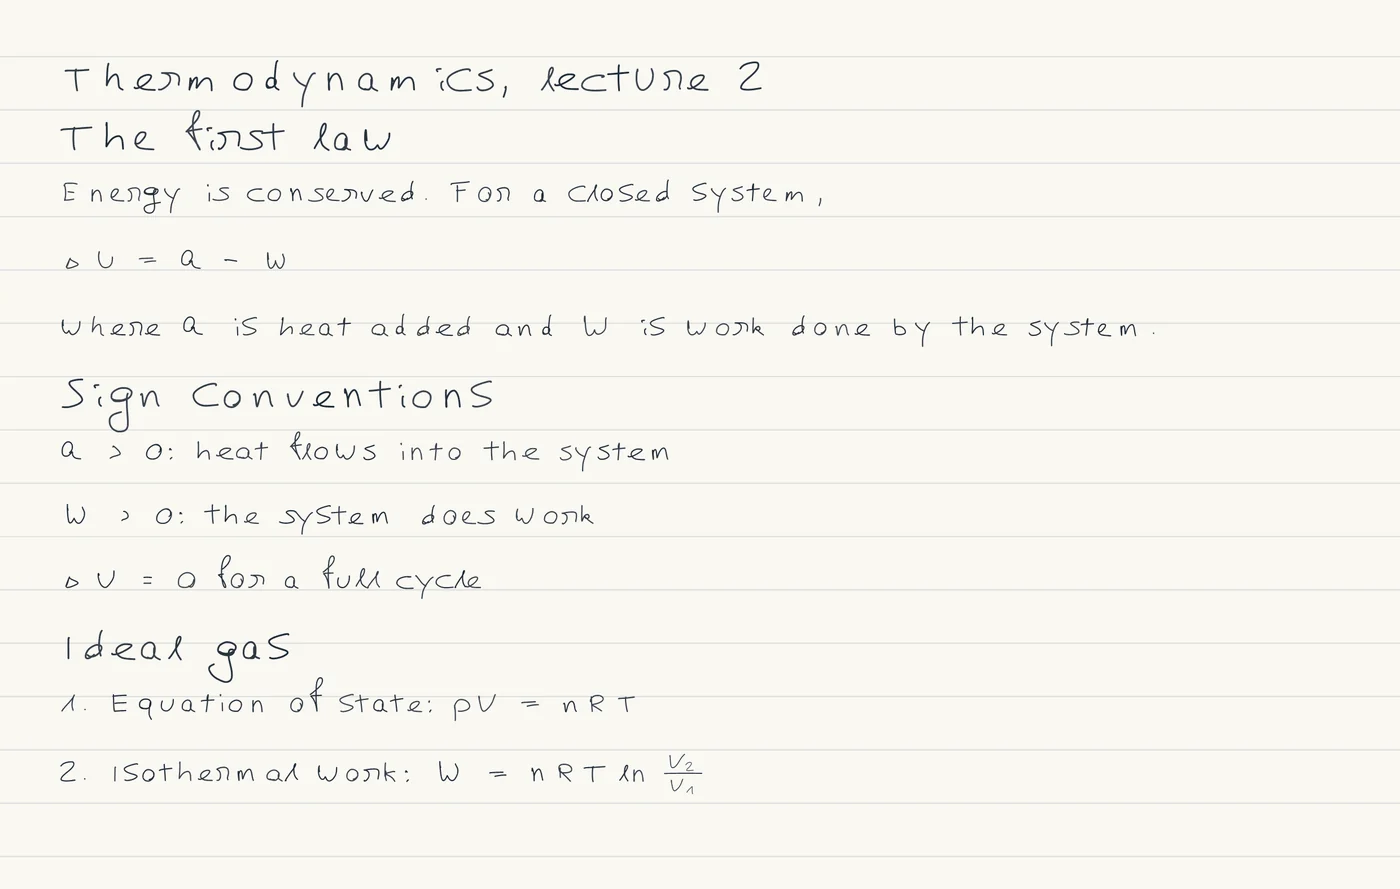 Thermodynamics, lecture 2
The first law
Energy is conserved. For a closed system,
ΔU = Q - W
where Q is heat added and W is work done by the system.
Sign conventions
Q > 0: heat flows into the system
W > 0: the system does work
ΔU = 0 for a full cycle
Ideal gas
1. Equation of state: pV = nRT
2. Isothermal work: W = nRT ln V₂/V₁